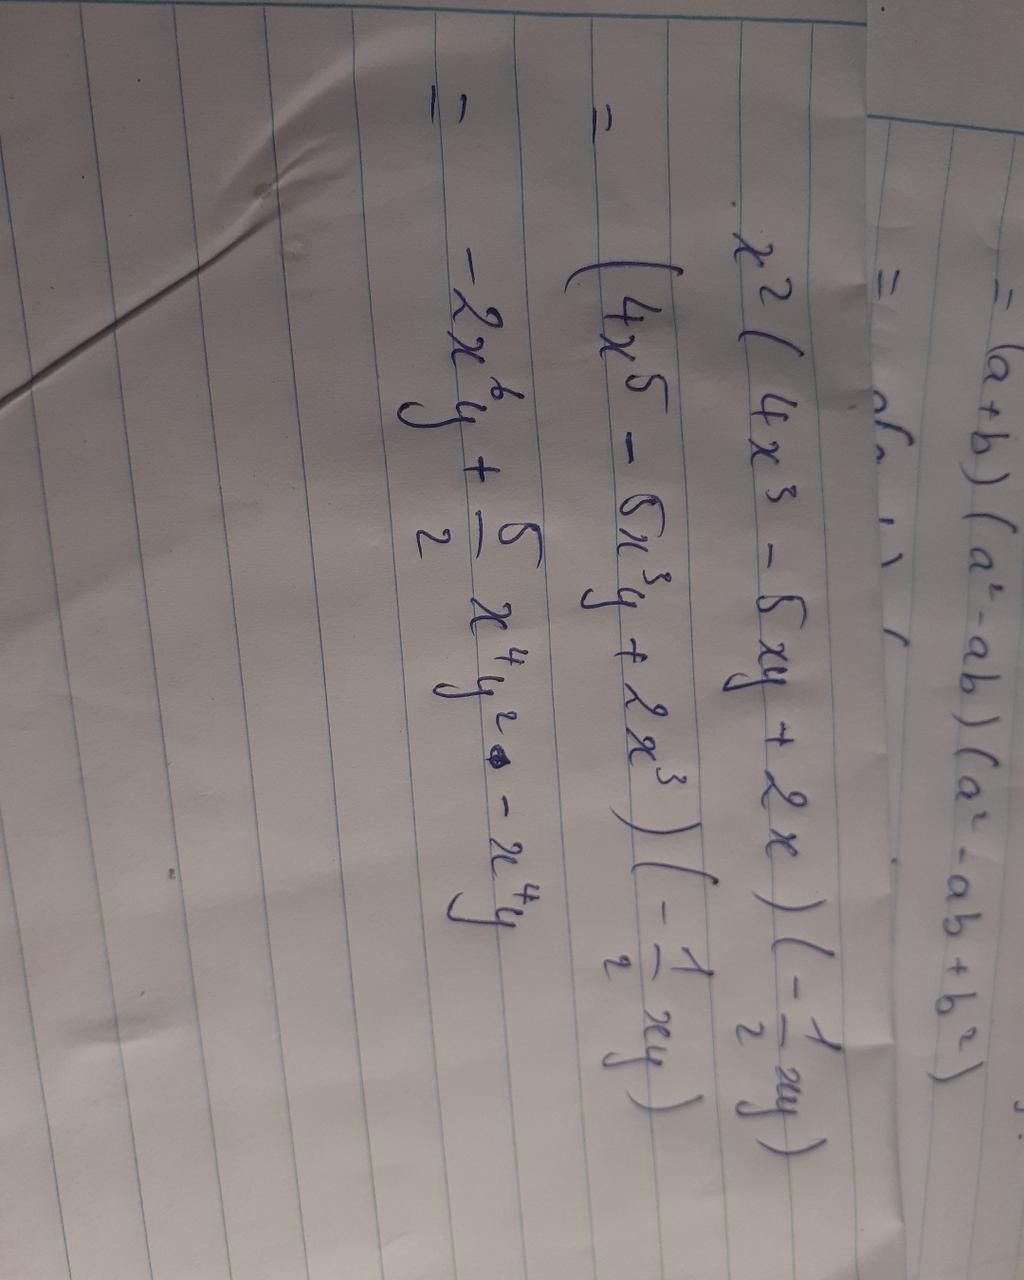 = (a+b)(a² - ab)(a² - ab + b²)
x²(4x³ - 5xy + 2x)(-1/2 xy)
= (4x⁵ - 5x³y + 2x³)(-1/2 xy)
= -2x⁶y + 5/2 x⁴y² - x⁴y